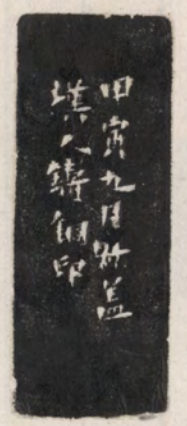 甲寅九月叔蓋
漢人鑄銅印